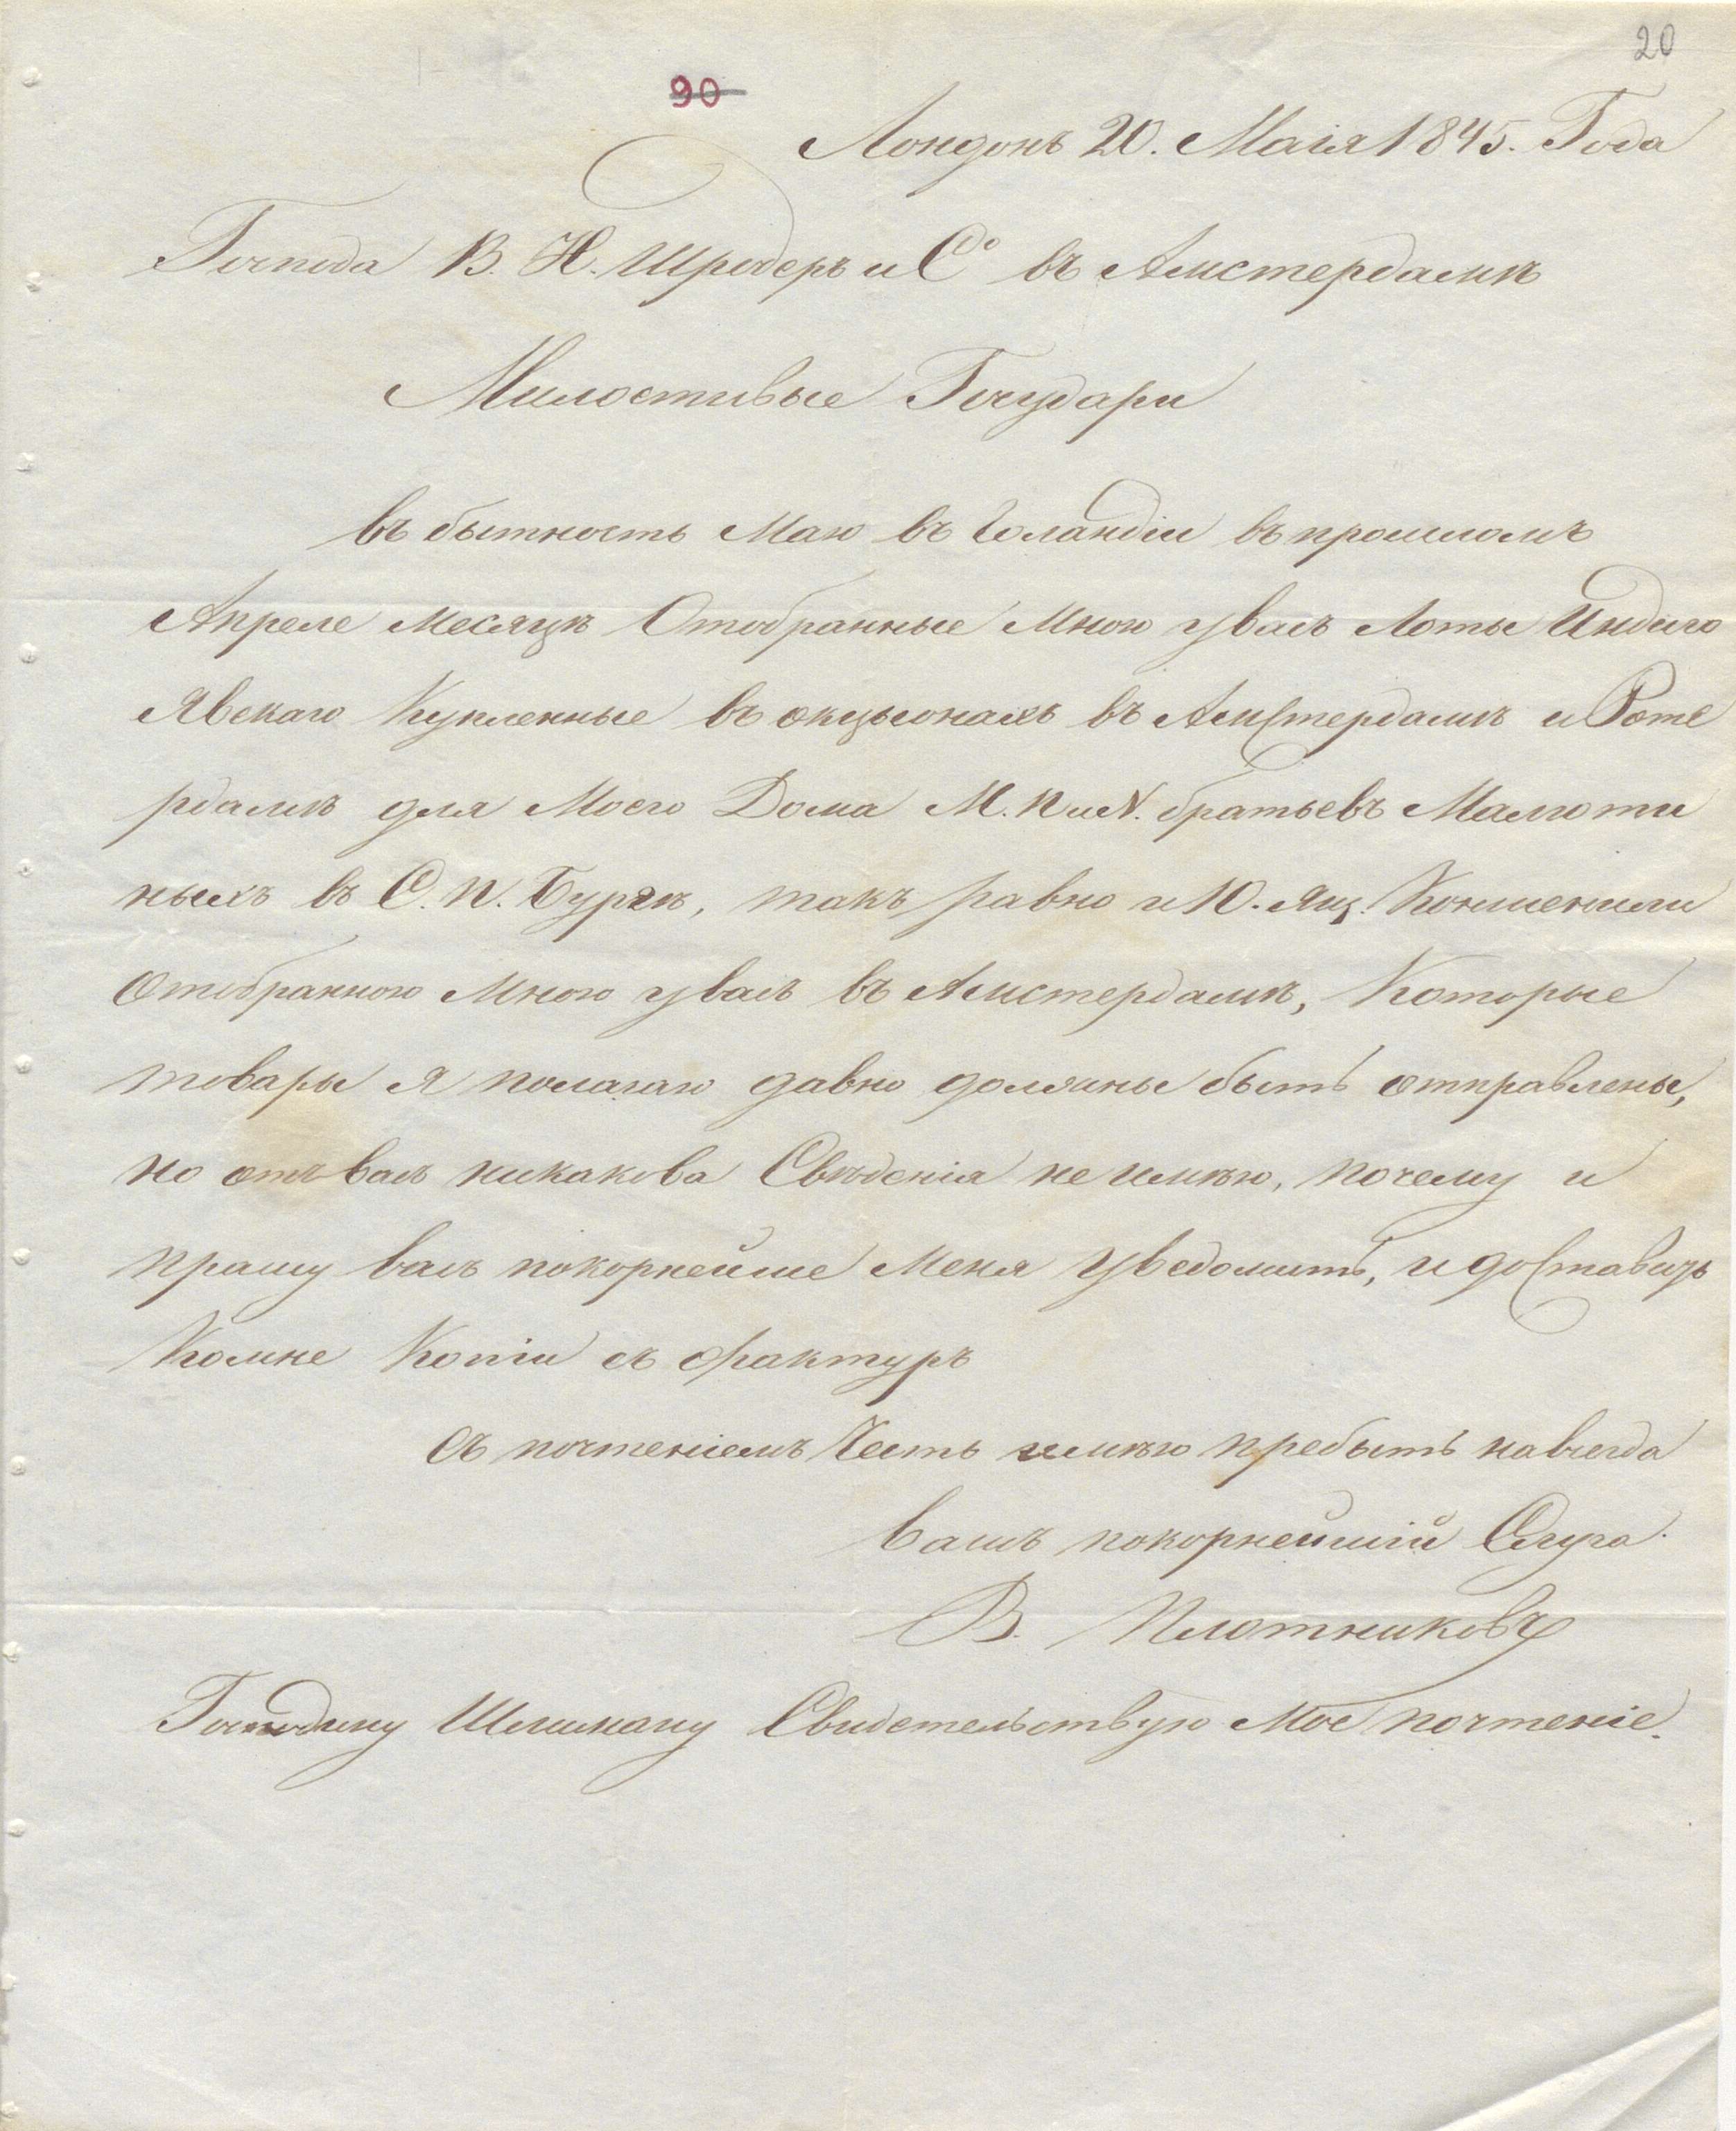 20
90
Лондонъ 20. Маія 1845. Года
Господа В. Н. Шредеръ и Cº въ Амстердамѣ
Милостивые Государи
въ бытность Маю въ Голандіи въ прошломъ
Апреле месяцѣ Отобранные Мною у васъ Лоты Индиго
Явскаго Купленные въ окцыонахъ въ Амстердамѣ и Роте
рдамѣ для Моего Дома М. П и N. братьевъ Малюти
ныхъ въ С. П. Бургѣ, такъ равно и 10. Ящ. Коншенили
Отобранною Мною у васъ въ Амстердамѣ, Которые
товары я полагаю давно должны быть отправлены,
но отъ васъ никакова Свѣденія не имѣю, почему и
прашу васъ покорнейше Меня Уведомить, и доставить
Комне Копіи съ фрактуръ
Съ почтеніемъ Честь имѣю пребыть навсегда
вашъ покорнейшій Слуга.
В. Плотниковъ
Господину Шлиману Свидетельствую Мое почтеніе.